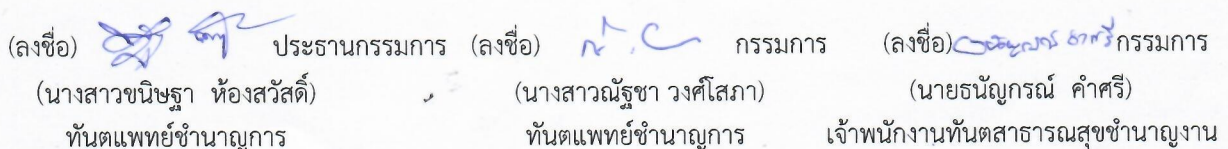 (ลงชื่อ) ประธานกรรมการ (ลงชื่อ) กรรมการ (ลงชื่อ) กรรมการ
(นางสาวขนิษฐา ห้องสวัสดิ์) (นางสาวณัฐชา วงศ์โสภา) (นายธนัญกรณ์ คำศรี)
ทันตแพทย์ชำนาญการ ทันตแพทย์ชำนาญการ เจ้าพนักงานทันตสาธารณสุขชำนาญงาน